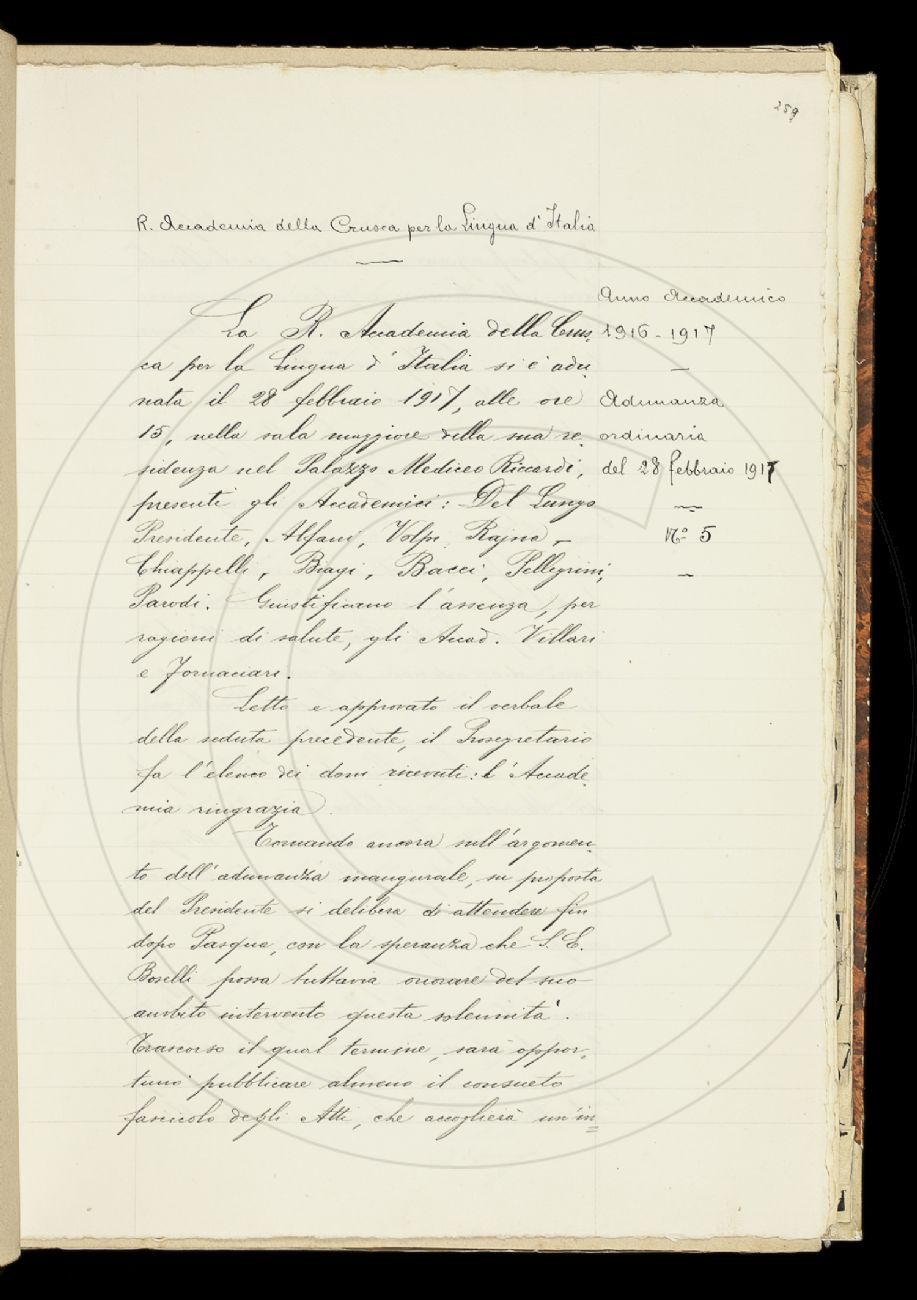 259
R. Accademia della Crusca per la Lingua d'Italia
Anno Accademico
1916-1917
Adunanza
ordinaria
del 28 febbraio 1917
N.° 5
La R. Accademia della Crus-
ca per la Lingua d'Italia si è adu-
nata il 28 febbraio 1917, alle ore
15, nella sala maggiore della sua re-
sidenza nel Palazzo Mediceo Riccardi,
presenti gli Accademici: Del Lungo
Presidente, Alfani, Volpi, Rajna,
Chiappelli, Biagi, Bacci, Pellegrini,
Parodi. Giustificano l'assenza, per
ragioni di salute, gli Accad. Villari
e Fornaciari.
Letto e approvato il verbale
della seduta precedente, il Prosegretario
fa l'elenco dei doni ricevuti: l'Accade-
mia ringrazia.
Tornando ancora sull'argomen-
to dell'adunanza inaugurale, su proposta
del Presidente si delibera di attendere fin
dopo Pasqua, con la speranza che S. E.
Boselli possa tuttavia onorare del suo
ambito intervento questa solennità.
Trascorso il qual termine, sarà oppor-
tuno pubblicare almeno il consueto
fascicolo degli Atti, che accoglierà un'in=